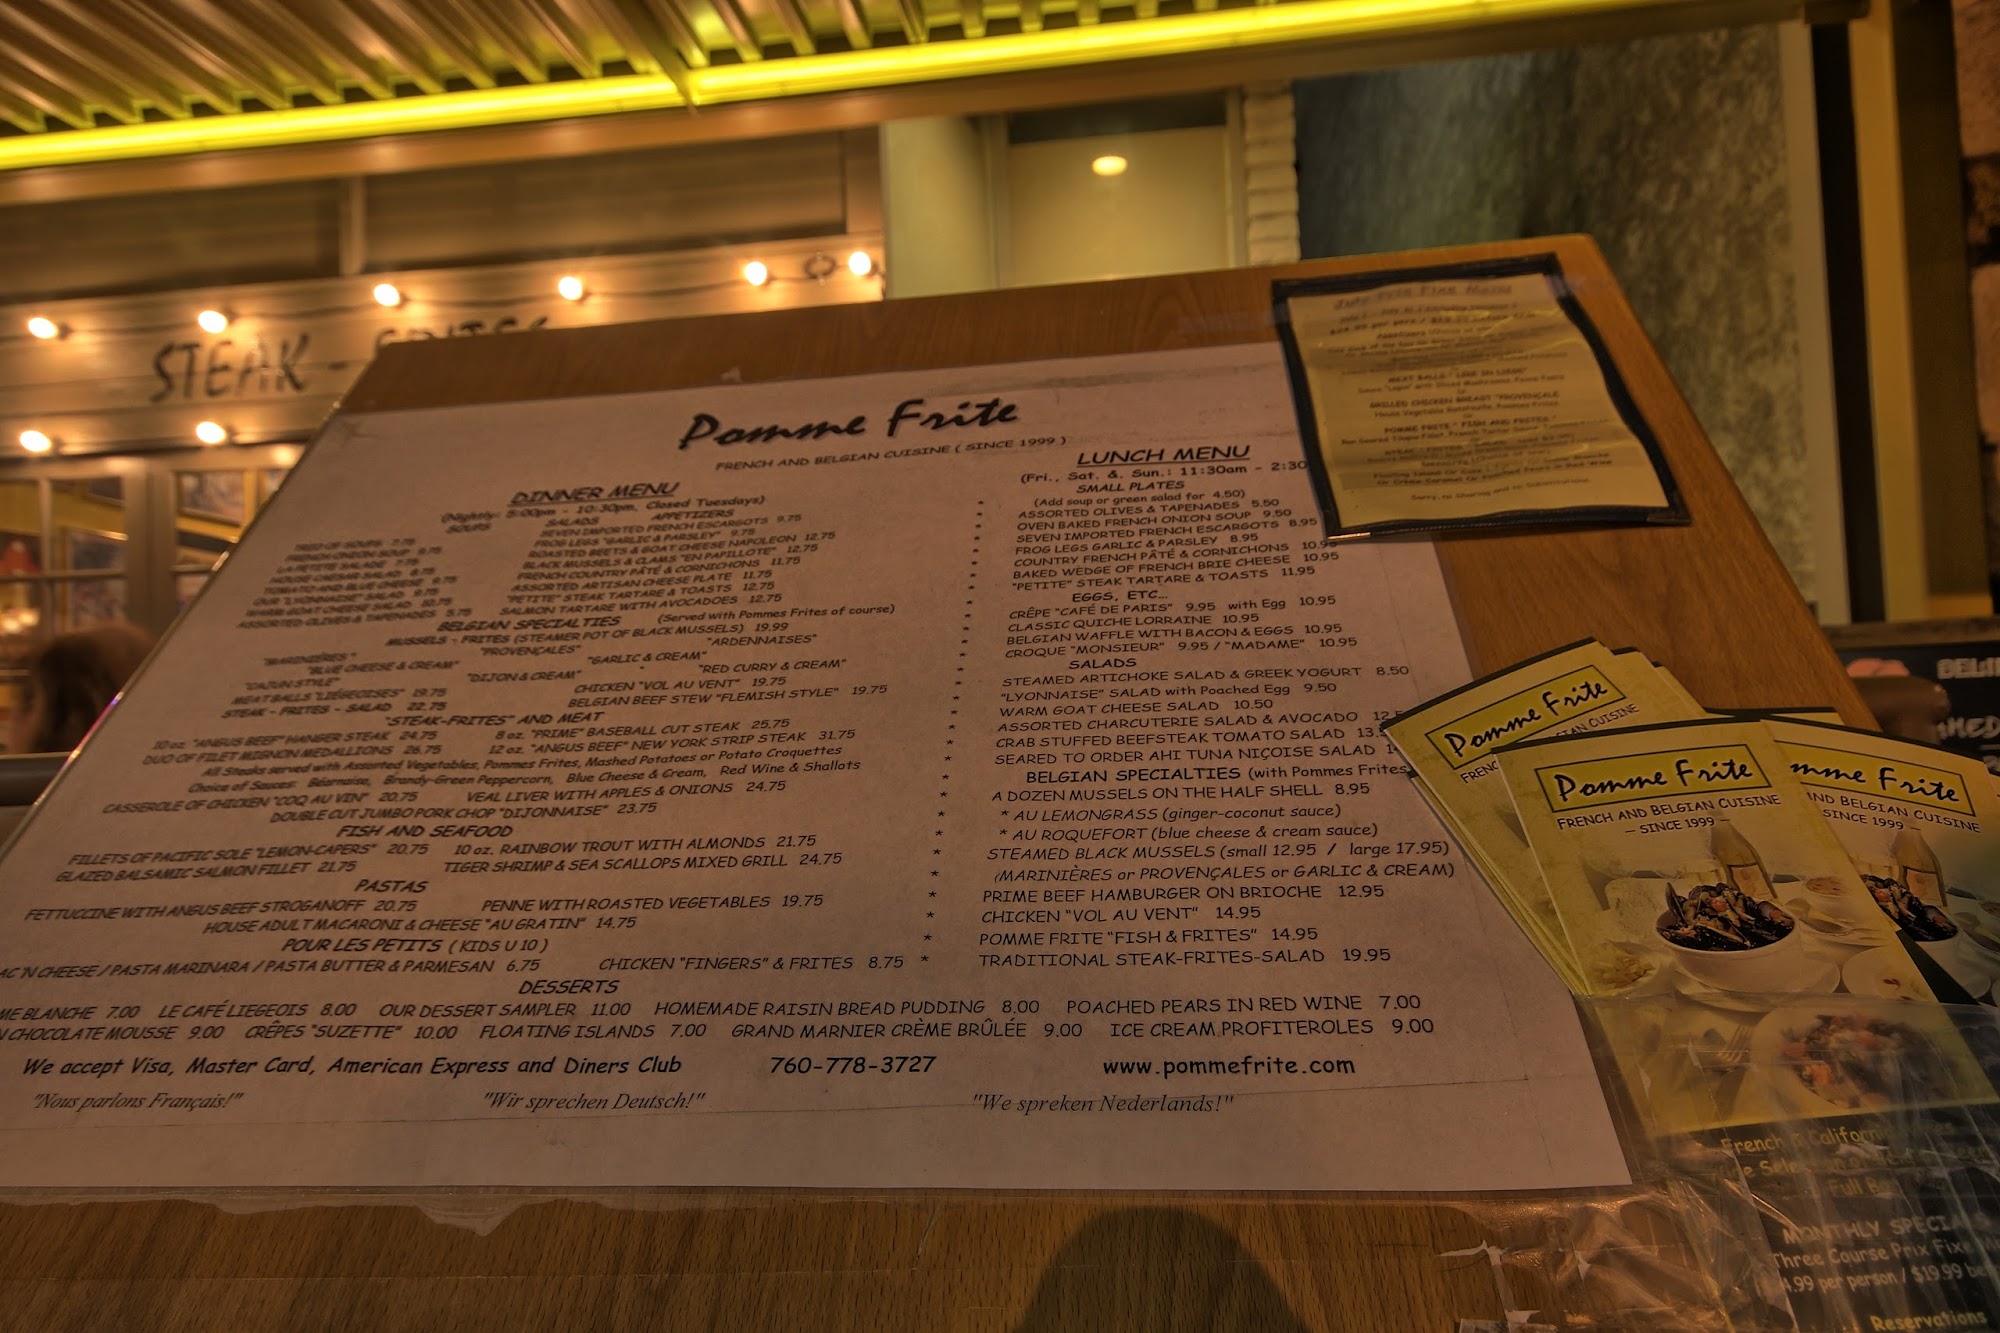 STEAK - FRITES
Pomme Frite
FRENCH AND BELGIAN CUISINE ( SINCE 1999 )
DINNER MENU
(Nightly: 5:00pm - 10:30pm, Closed Tuesdays)
SOUPS SALADS APPETIZERS
TRIO OF SOUPS 7.75
FRENCH ONION SOUP 9.75
LA PETITE SALADE 7.75
HOUSE CAESAR SALAD 8.75
TOMATO AND BLUE CHEESE 9.75
OUR "LYONNAISE" SALAD 9.75
WARM GOAT CHEESE SALAD 10.75
ASSORTED OLIVES & TAPENADES 5.75
SEVEN IMPORTED FRENCH ESCARGOTS 9.75
FROG LEGS "GARLIC & PARSLEY" 9.75
ROASTED BEETS & GOAT CHEESE NAPOLEON 12.75
BLACK MUSSELS & CLAMS "EN PAPILLOTE" 12.75
FRENCH COUNTRY PÂTÉ & CORNICHONS 11.75
ASSORTED ARTISAN CHEESE PLATE 11.75
"PETITE" STEAK TARTARE & TOASTS 12.75
SALMON TARTARE WITH AVOCADOES 12.75
BELGIAN SPECIALTIES (Served with Pommes Frites of course)
MUSSELS - FRITES (STEAMER POT OF BLACK MUSSELS) 19.99
"MARINIÈRES" "PROVENÇALES" "ARDENNAISES"
"BLUE CHEESE & CREAM" "GARLIC & CREAM"
"CAJUN STYLE" "DIJON & CREAM" "RED CURRY & CREAM"
MEAT BALLS "LIÉGEOISES" 19.75 CHICKEN "VOL AU VENT" 19.75
STEAK - FRITES - SALAD 22.75 BELGIAN BEEF STEW "FLEMISH STYLE" 19.75
"STEAK-FRITES" AND MEAT
10 oz. "ANGUS BEEF" HANGER STEAK 24.75 8 oz. "PRIME" BASEBALL CUT STEAK 25.75
DUO OF FILET MIGNON MEDALLIONS 26.75 12 oz. "ANGUS BEEF" NEW YORK STRIP STEAK 31.75
All Steaks served with Assorted Vegetables, Pommes Frites, Mashed Potatoes or Potato Croquettes
Choice of Sauces: Béarnaise, Brandy-Green Peppercorn, Blue Cheese & Cream, Red Wine & Shallots
CASSEROLE OF CHICKEN "COQ AU VIN" 20.75 VEAL LIVER WITH APPLES & ONIONS 24.75
DOUBLE CUT JUMBO PORK CHOP "DIJONNAISE" 23.75
FISH AND SEAFOOD
FILLETS OF PACIFIC SOLE "LEMON-CAPERS" 20.75 10 oz. RAINBOW TROUT WITH ALMONDS 21.75
GLAZED BALSAMIC SALMON FILLET 21.75 TIGER SHRIMP & SEA SCALLOPS MIXED GRILL 24.75
PASTAS
FETTUCCINE WITH ANGUS BEEF STROGANOFF 20.75 PENNE WITH ROASTED VEGETABLES 19.75
HOUSE ADULT MACARONI & CHEESE "AU GRATIN" 14.75
POUR LES PETITS ( KIDS U 10 )
AC 'N CHEESE / PASTA MARINARA / PASTA BUTTER & PARMESAN 6.75 CHICKEN "FINGERS" & FRITES 8.75
LUNCH MENU
(Fri., Sat. &. Sun.: 11:30am - 2:30
SMALL PLATES
(Add soup or green salad for 4.50)
* ASSORTED OLIVES & TAPENADES 5.50
* OVEN BAKED FRENCH ONION SOUP 9.50
* SEVEN IMPORTED FRENCH ESCARGOTS 8.95
* FROG LEGS GARLIC & PARSLEY 8.95
* COUNTRY FRENCH PÂTÉ & CORNICHONS 10.95
* BAKED WEDGE OF FRENCH BRIE CHEESE 10.95
* "PETITE" STEAK TARTARE & TOASTS 11.95
EGGS, ETC...
* CRÊPE "CAFÉ DE PARIS" 9.95 with Egg 10.95
* CLASSIC QUICHE LORRAINE 10.95
* BELGIAN WAFFLE WITH BACON & EGGS 10.95
* CROQUE "MONSIEUR" 9.95 / "MADAME" 10.95
SALADS
* STEAMED ARTICHOKE SALAD & GREEK YOGURT 8.50
* "LYONNAISE" SALAD with Poached Egg 9.50
* WARM GOAT CHEESE SALAD 10.50
* ASSORTED CHARCUTERIE SALAD & AVOCADO 12.5
* CRAB STUFFED BEEFSTEAK TOMATO SALAD 13.
* SEARED TO ORDER AHI TUNA NIÇOISE SALAD 14
BELGIAN SPECIALTIES (with Pommes Frites
* A DOZEN MUSSELS ON THE HALF SHELL 8.95
* * AU LEMONGRASS (ginger-coconut sauce)
* * AU ROQUEFORT (blue cheese & cream sauce)
* STEAMED BLACK MUSSELS (small 12.95 / large 17.95)
* (MARINIÈRES or PROVENÇALES or GARLIC & CREAM)
* PRIME BEEF HAMBURGER ON BRIOCHE 12.95
* CHICKEN "VOL AU VENT" 14.95
* POMME FRITE "FISH & FRITES" 14.95
* TRADITIONAL STEAK-FRITES-SALAD 19.95
DESSERTS
ME BLANCHE 7.00 LE CAFÉ LIEGEOIS 8.00 OUR DESSERT SAMPLER 11.00 HOMEMADE RAISIN BREAD PUDDING 8.00 POACHED PEARS IN RED WINE 7.00
N CHOCOLATE MOUSSE 9.00 CRÊPES "SUZETTE" 10.00 FLOATING ISLANDS 7.00 GRAND MARNIER CRÈME BRÛLÉE 9.00 ICE CREAM PROFITEROLES 9.00
We accept Visa, Master Card, American Express and Diners Club 760-778-3727 www.pommefrite.com
"Nous parlons Français!" "Wir sprechen Deutsch!" "We spreken Nederlands!"
July Prix Fixe Menu
MEAT BALLS
GRILLED CHICKEN BREAST "PROVENÇALE
POMME FRITE " FISH AND FRITES "
Sorry, no Sharing and no Substitutions
Pomme Frite
Pomme Frite
FRENCH AND BELGIAN CUISINE
— SINCE 1999 —
mme Frite
ND BELGIAN CUISINE
SINCE 1999 —
Full Ba
MONTHLY SPECIA
Three Course Prix Fixe
4.99 per person / $19.99 be
Reservations